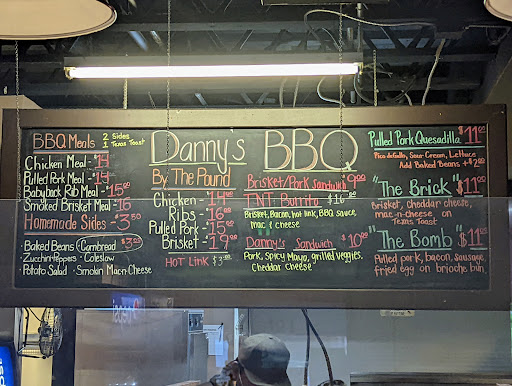 BBQ Meals 2 Sides
1 Texas Toast
Chicken Meal - 14
Pulled Pork Meal - 14
Babyback Rib Meal - 15.00
Smoked Brisket Meal - 16
Homemade Sides - 3.50
• Baked Beans
Cornbread $3.00
• Zucchini + Peppers • Coleslaw
• Potato Salad • Smokin Mac n Cheese
Danny's BBQ
By The Pound
Chicken - 14.00
Ribs - 16
Pulled Pork - 15.00
Brisket - 19.00
Hot Link $3
Brisket/Pork Sandwich $9.00
TNT Burrito $16
Brisket, Bacon, hot link, BBQ sauce,
mac & cheese
Danny's Sandwich $10
Pork, Spicy Mayo, grilled veggies,
Cheddar Cheese
Pulled Pork Quesadilla $11
Pico de Gallo, Sour Cream, Lettuce
Add Baked Beans +$2.00
"The Brick" $11
Brisket, cheddar cheese,
mac-n-cheese on
Texas Toast
"The Bomb" $11
Pulled pork, bacon, sausage,
fried egg on brioche bun